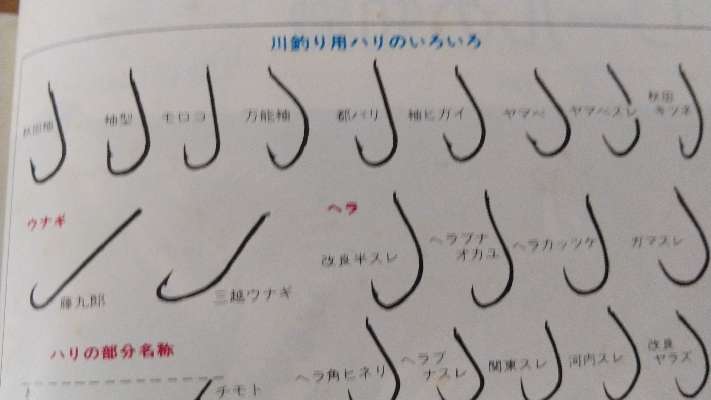 川釣り用ハリのいろいろ
秋田袖
袖型
モロコ
万能袖
都バリ
袖ヒガイ
ヤマベ
ヤマベスレ
秋田
キツネ
ウナギ
藤九郎
三越ウナギ
ヘラ
改良半スレ
ヘラブナ
オカユ
ヘラカッツケ
ガマスレ
ハリの部分名称
チモト
ヘラ角ヒネリ
ヘラブ
ナスレ
関東スレ
河内スレ
改良
ヤラズ